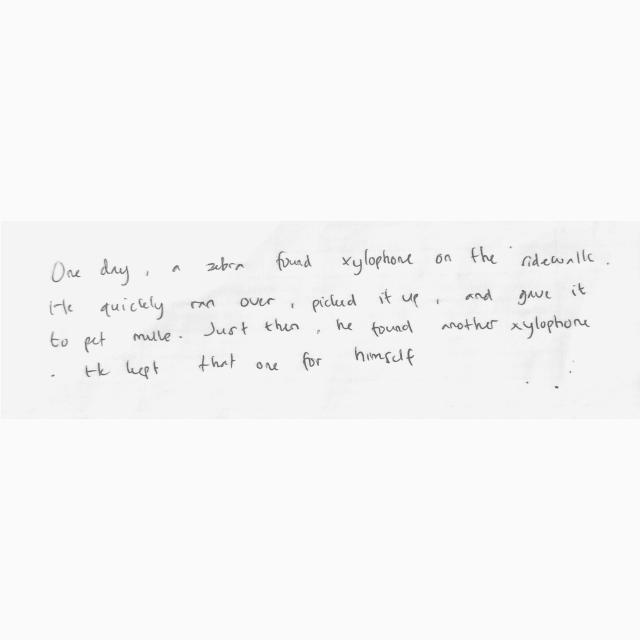 One day, a zebra found xylophone on the sidewalk.
He quickly ran over, picked it up, and gave it
to pet mule. Just then, he found another xylophone
. He kept that one for himself